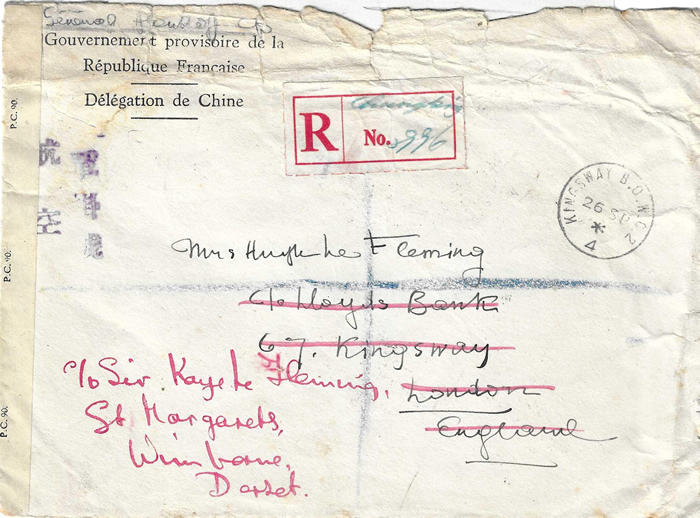 Général
Gouvernement provisoire de la
République Française
Délégation de Chine
P.C. 90.
P.C. 90.
P.C. 90.
R
Chungking
No. 996
航
空
KINGSWAY B.O. W.C.2
26 SP
*
4
Mrs Hugh Le Fleming
c/o Lloyds Bank
67. Kingsway
London
England
c/o Sir. Kaye Le Fleming,
St Margarets,
Wimborne,
Dorset.